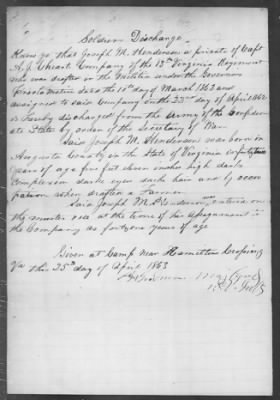 Soldiers Discharge
Know ye that Joseph M. Henderson a private of Capt
A. J. Company of the 13th Virginia Regiment
who was drafted in the Militia under the Governors
Proclamation dated the 10th day of March 1862 and
assigned to said Company on the 23rd day of April 1862
is hereby discharged from the Army of the Confeder
ate States by order of the Secretary of War.
Said Joseph M. Henderson was born in
Augusta County in the State of Virginia is forty three
years of age five feet seven inches high dark
Complexion dark eyes dark hair and by occu
pation when drafted a Farmer
Said Joseph M. Henderson was entered on
the muster role at the time of his assignment to
the Company as forty one years of age
Given at Camp near Hamiltons Crossing
Va this 25th day of April 1863